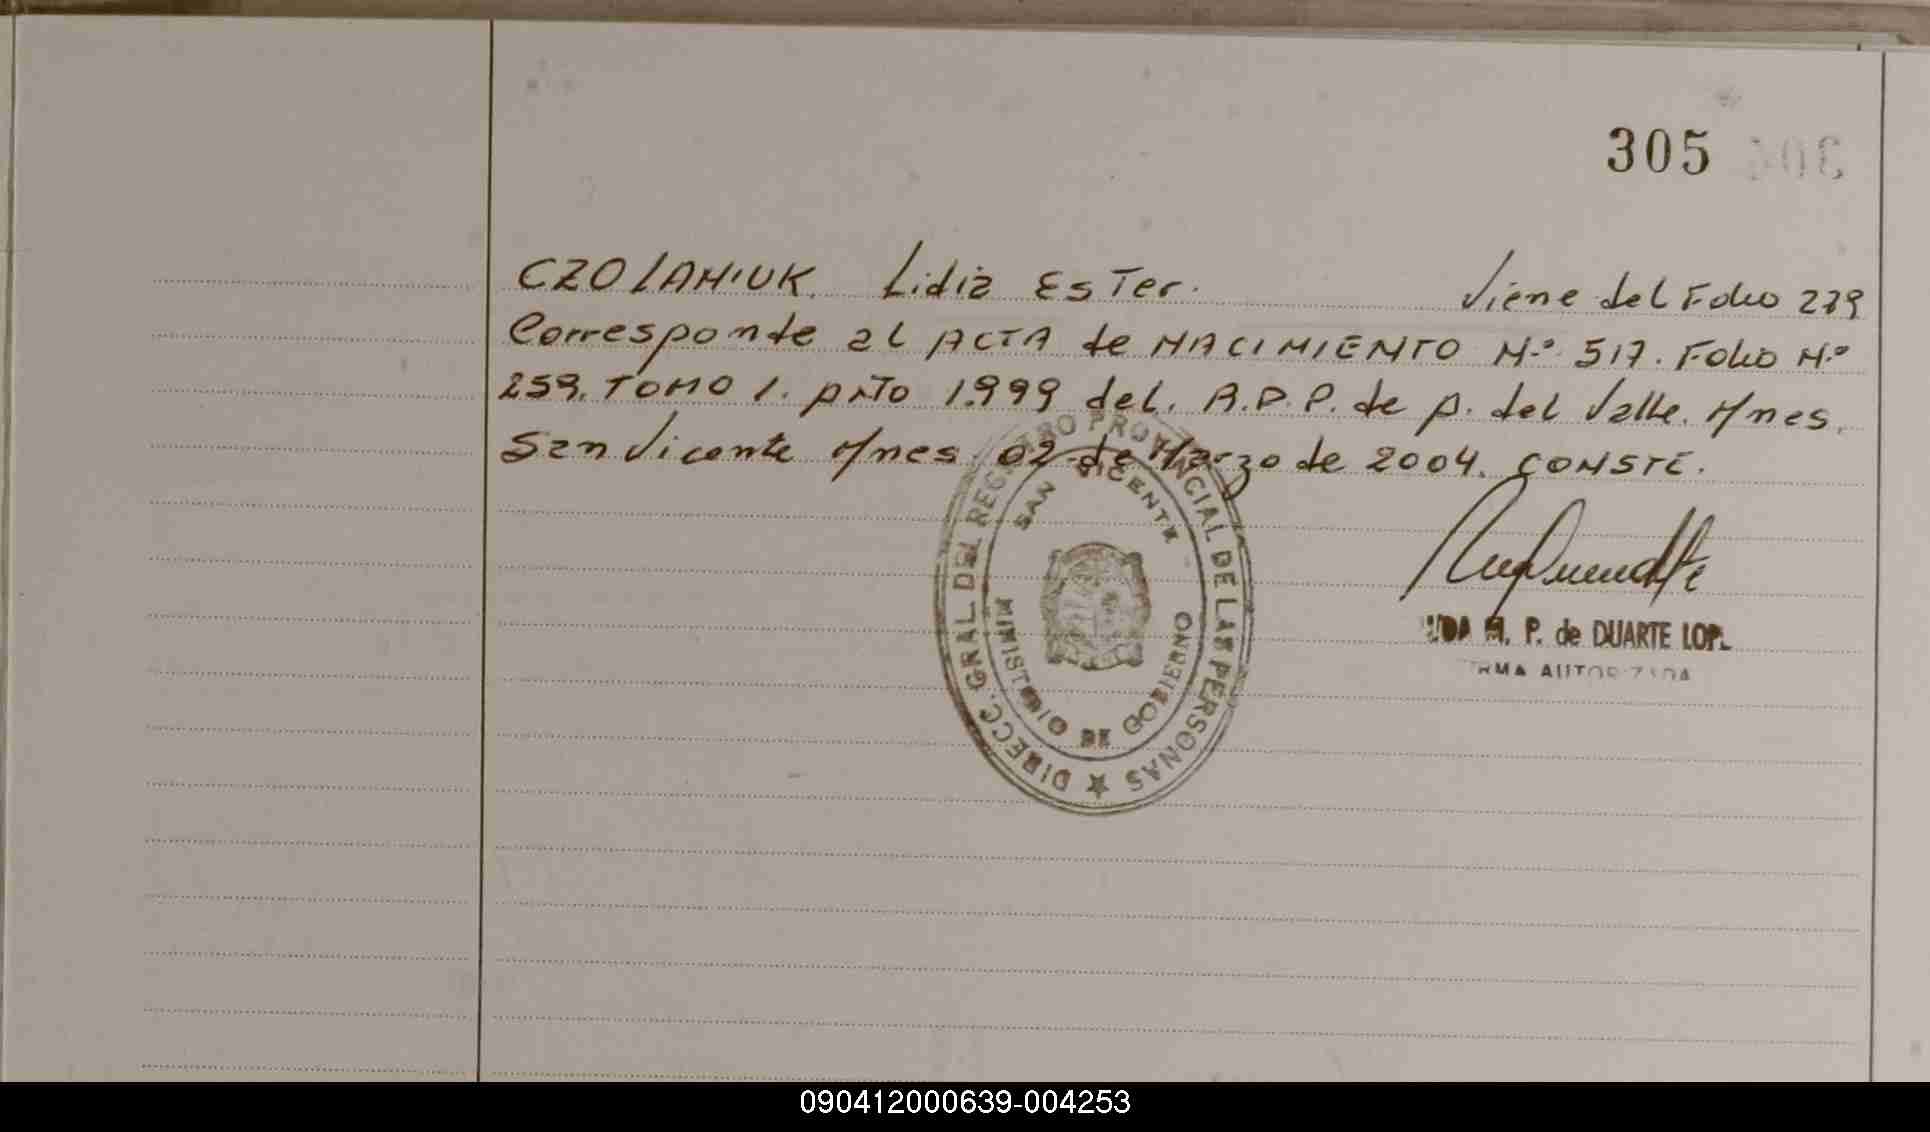 305
CZOLANIUK. Lidia Ester. Viene del Folio 279
Corresponde al ACTA de NACIMIENTO N.º 517. Folio N.º
259. TOMO 1. pnto 1.999 del. R.P.P. de p. del Valle. Mnes.
San Vicente Mnes. 02 de Marzo de 2004. CONSTE.
DIRECC. GRAL. DEL REGISTRO PROVINCIAL DE LAS PERSONAS
SAN VICENTE
MINISTERIO DE GOBIERNO
M. P. de DUARTE LOP
RMA AUTORIZADA
090412000639-004253